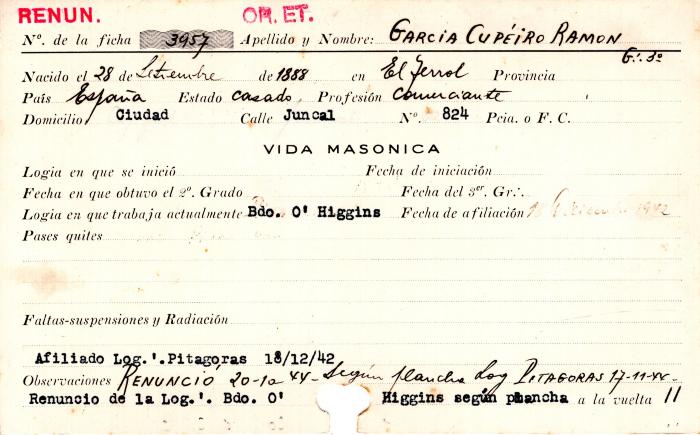 RENUN. OR. ET.
Nº. de la ficha 3957 Apellido y Nombre: GARCIA CUPÉIRO RAMON
G∴ 3º
Nacido el 28 de Setiembre de 1888 en El Ferrol Provincia
País España Estado casado Profesión comerciante
Domicilio Ciudad Calle Juncal Nº. 824 Pcia. o F. C.
VIDA MASONICA
Logia en que se inició Fecha de iniciación
Fecha en que obtuvo el 2º. Grado Fecha del 3er. Gr∴
Logia en que trabaja actualmente Bdo. O' Higgins Fecha de afiliación 1942
Pases quites
Faltas-suspensiones y Radiación
Afiliado Log.'.Pitagoras 18/12/42
Observaciones RENUNCIÓ 20-10-44- Según plancha Log PITAGORAS 17-11-44-
Renuncio de la Log.'. Bdo. O' Higgins según plancha a la vuelta 11